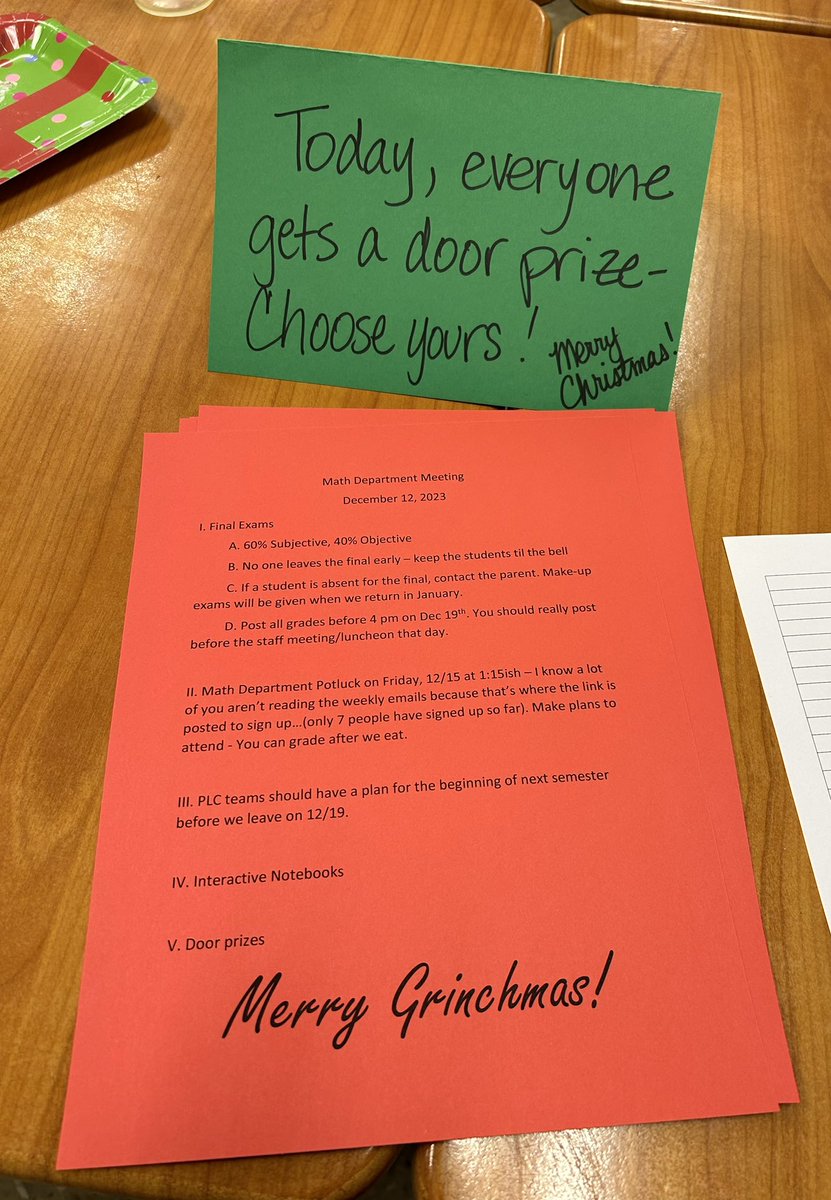 Today, everyone
gets a door prize-
Choose yours!
Merry
Christmas!
Math Department Meeting
December 12, 2023
I. Final Exams
A. 60% Subjective, 40% Objective
B. No one leaves the final early – keep the students til the bell
C. If a student is absent for the final, contact the parent. Make-up
exams will be given when we return in January.
D. Post all grades before 4 pm on Dec 19th. You should really post
before the staff meeting/luncheon that day.
II. Math Department Potluck on Friday, 12/15 at 1:15ish – I know a lot
of you aren't reading the weekly emails because that's where the link is
posted to sign up...(only 7 people have signed up so far). Make plans to
attend - You can grade after we eat.
III. PLC teams should have a plan for the beginning of next semester
before we leave on 12/19.
IV. Interactive Notebooks
V. Door prizes
Merry Grinchmas!